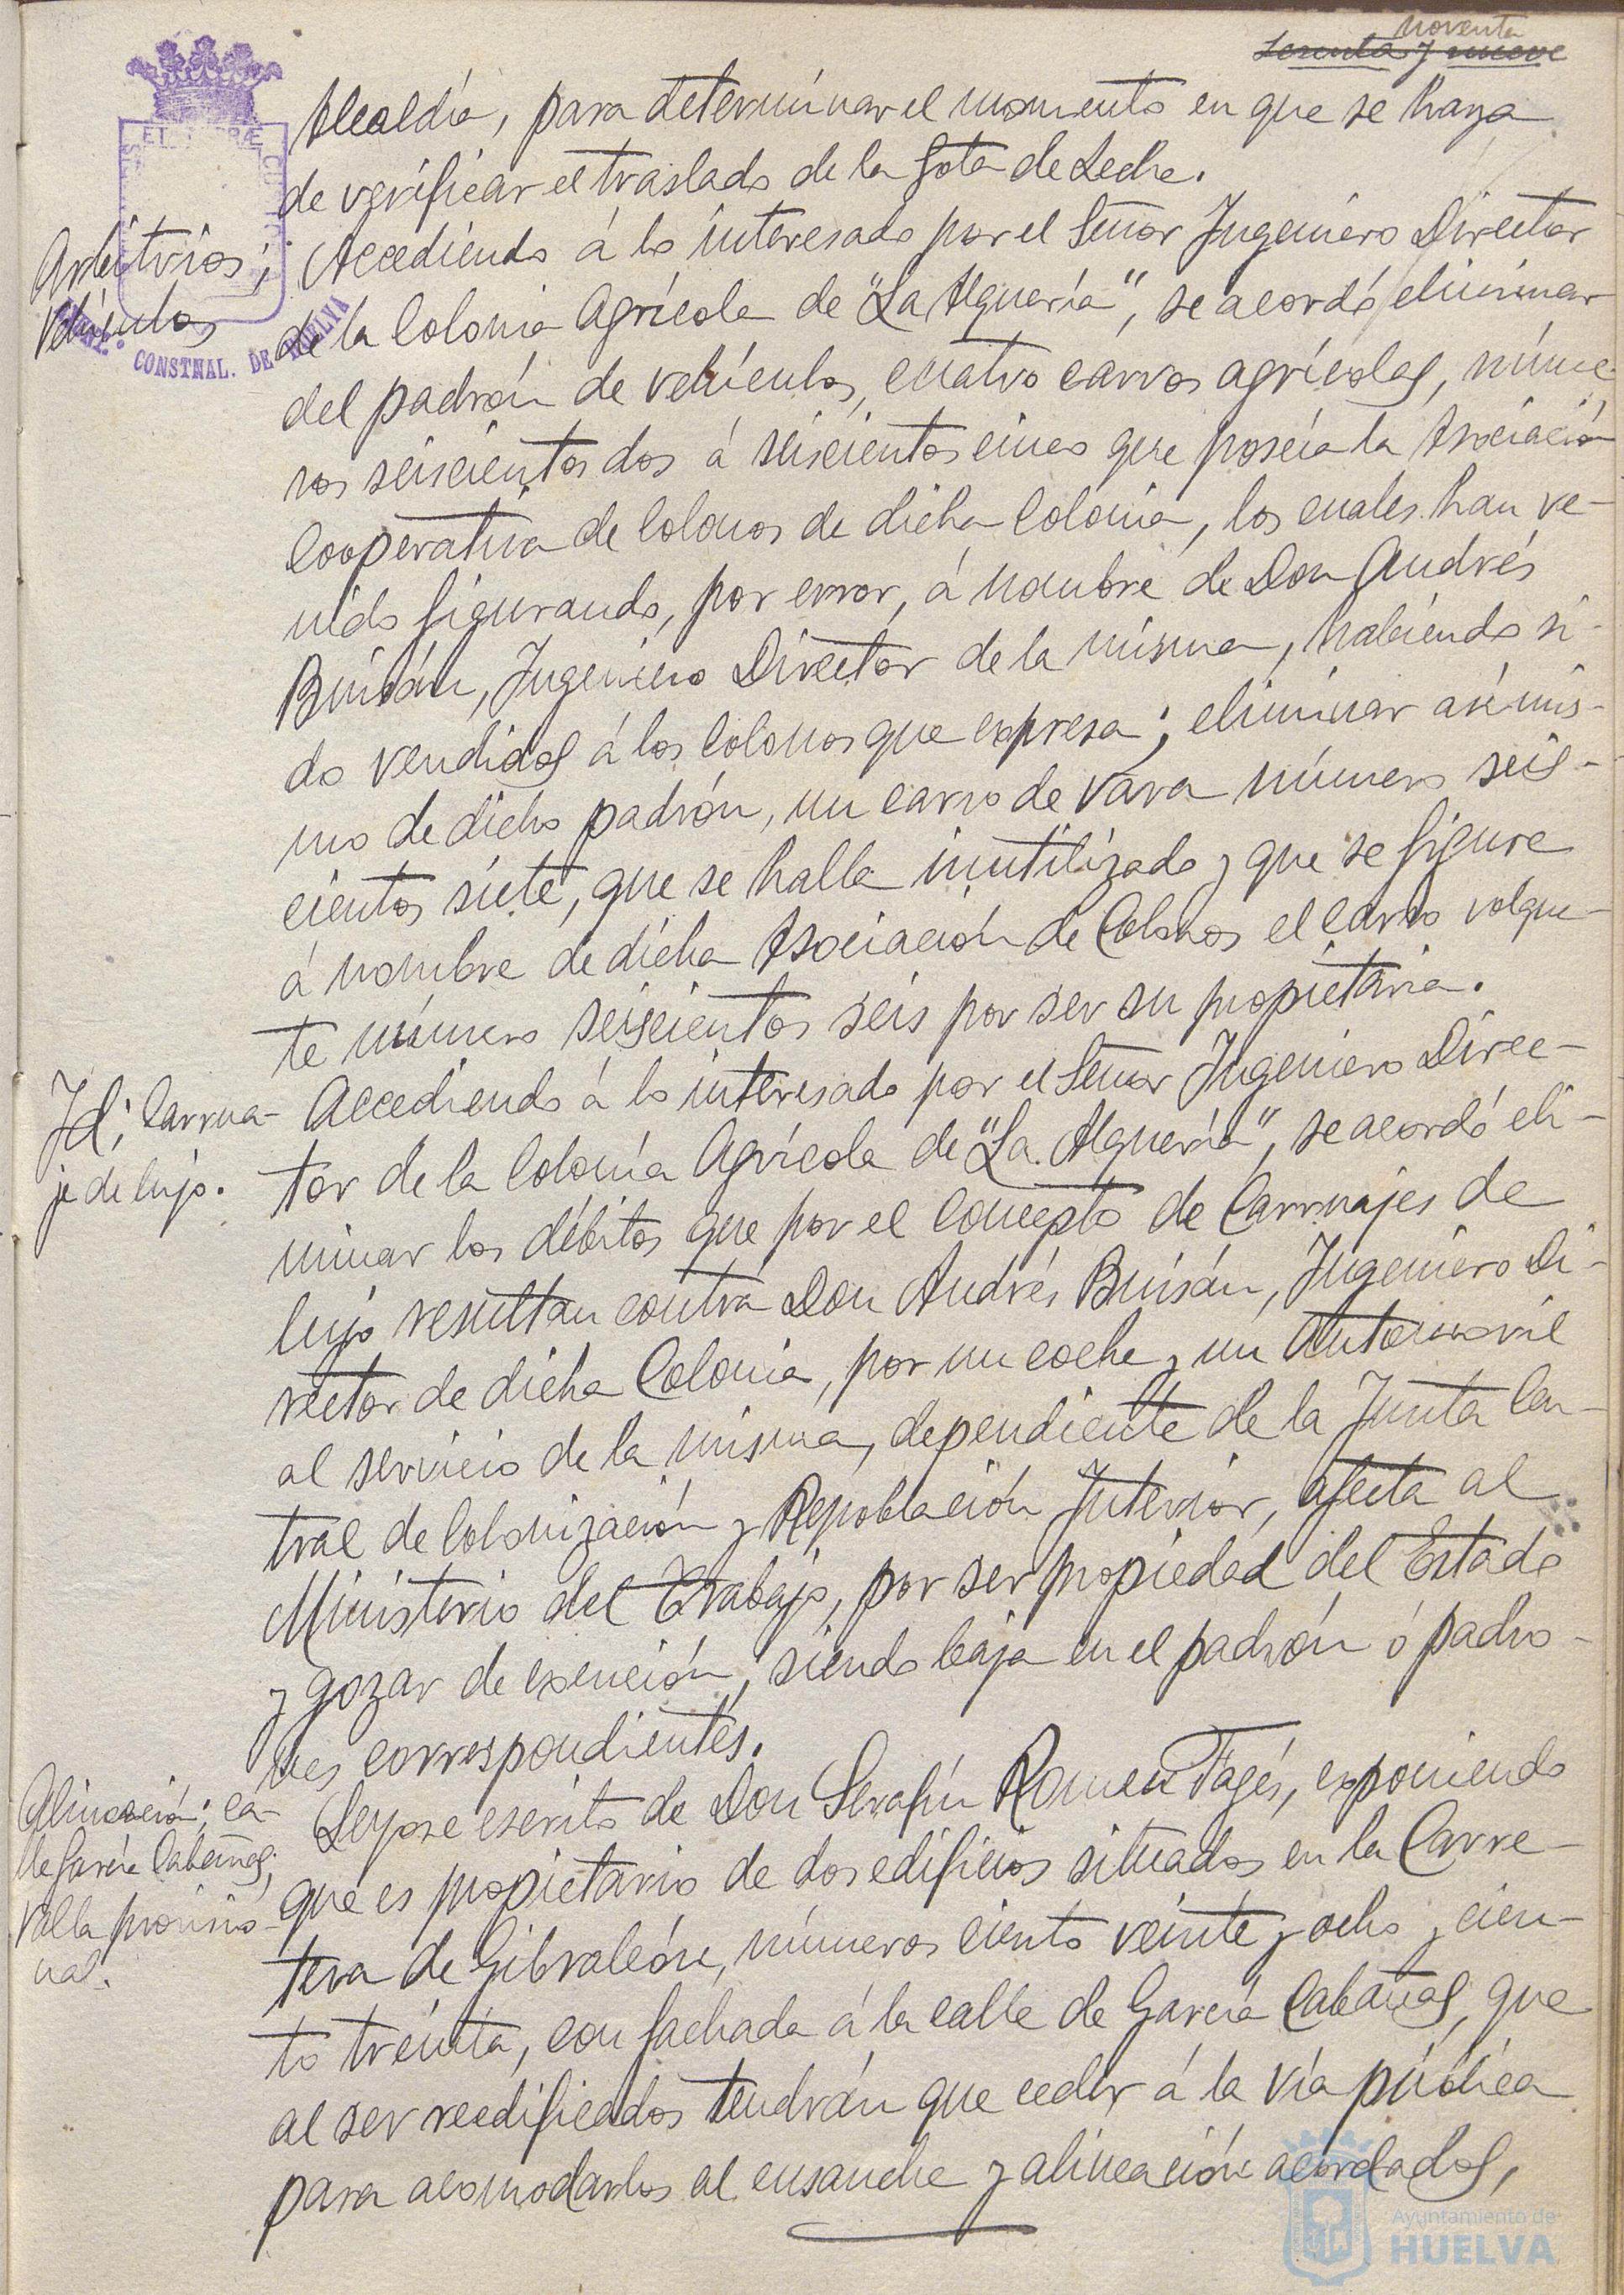 noventa
Sesenta y nueve
Alcaldía, para determinar el momento en que se haya
de verificar el traslado de la Gota de Leche.
Arbitrios;
Vehículos
AYUNT.º CONSTNAL. DE HUELVA
Accediendo á lo interesado por el Señor Ingeniero Director
de la Colonia Agrícola de "La Alquería", se acordó eliminar
del padrón de vehículos, cuatro carros agrícolas, núme-
ros seiscientos dos á seiscientos cinco que poseía la Asociación
Cooperativa de Colonos de dicha Colonia, los cuales han ve-
nido figurando, por error, á nombre de Don Andrés
Buisán, Ingeniero Director de la misma, habiendo si-
do vendidos á los Colonos que expresa; eliminar asímis-
mo de dicho padrón, un carro de vara número seis-
cientos siete, que se halla inutilizado y que se figure
á nombre de dicha Asociación de Colonos el carro volque-
te número seiscientos seis por ser su propietaria.
Id; Carrua-
je de lujo.
Accediendo á lo interesado por el Señor Ingeniero Direc-
tor de la Colonia Agrícola de "La Alquería", se acordó eli-
minar los débitos que por el concepto de Carruajes de
lujo resultan contra Don Andrés Buisán, Ingeniero Di-
rector de dicha Colonia, por un coche y un Automovil
al servicio de la misma, dependiente de la Junta Cen-
tral de Colonización y Repoblación Interior, afecta al
Ministerio del Trabajo, por ser propiedad del Estado
y gozar de exención, siendo baja en el padrón ó padro-
nes correspondientes.
Alineación; ca-
lle García Cabañas;
Valla provisio-
nal.
Leyose escrito de Don Serafín Romeu Fagés, exponiendo
que es propietario de dos edificios situados en la Carre-
tera de Gibraleón, números ciento veinte y ocho y cien-
to treinta, con fachada á la calle de García Cabañas, que
al ser reedificados tendrán que ceder á la vía pública
para acomodarlos al ensanche y alineación acordados,
Ayuntamiento de
HUELVA